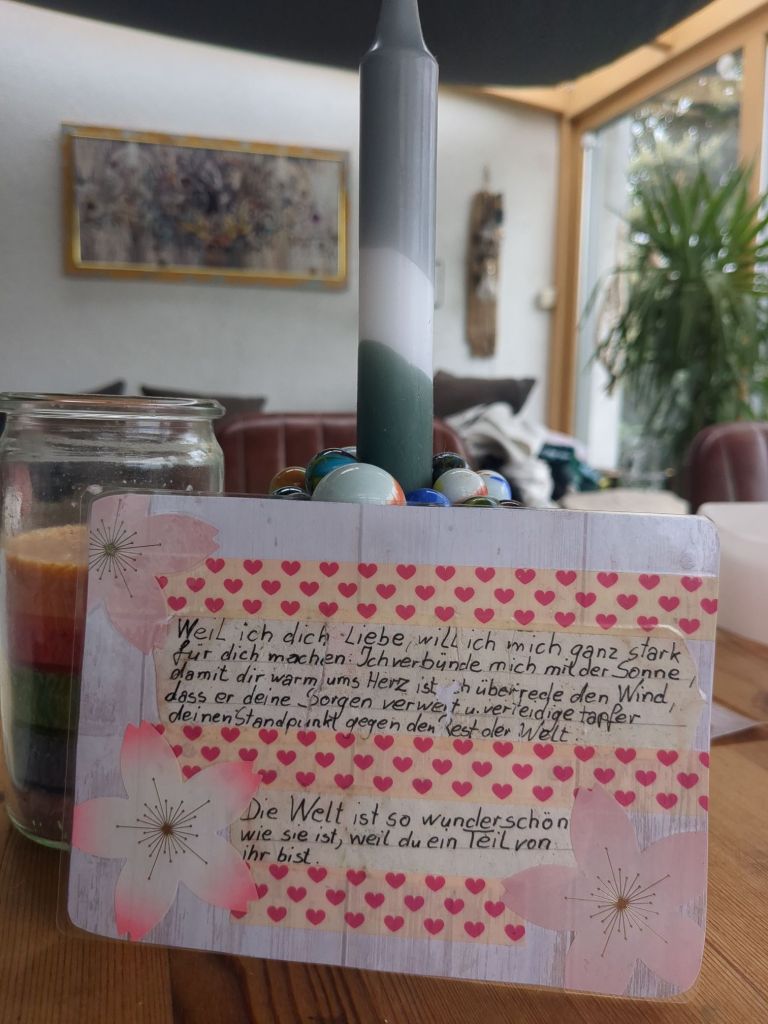 Weil ich dich Liebe, will ich mich ganz stark
für dich machen: Ich verbünde mich mit der Sonne,
damit dir warm ums Herz ist, ich überrede den Wind,
dass er deine Sorgen verweht u. verteidige tapfer
deinen Standpunkt gegen den Rest der Welt.
Die Welt ist so wunderschön
wie sie ist, weil du ein Teil von
ihr bist.